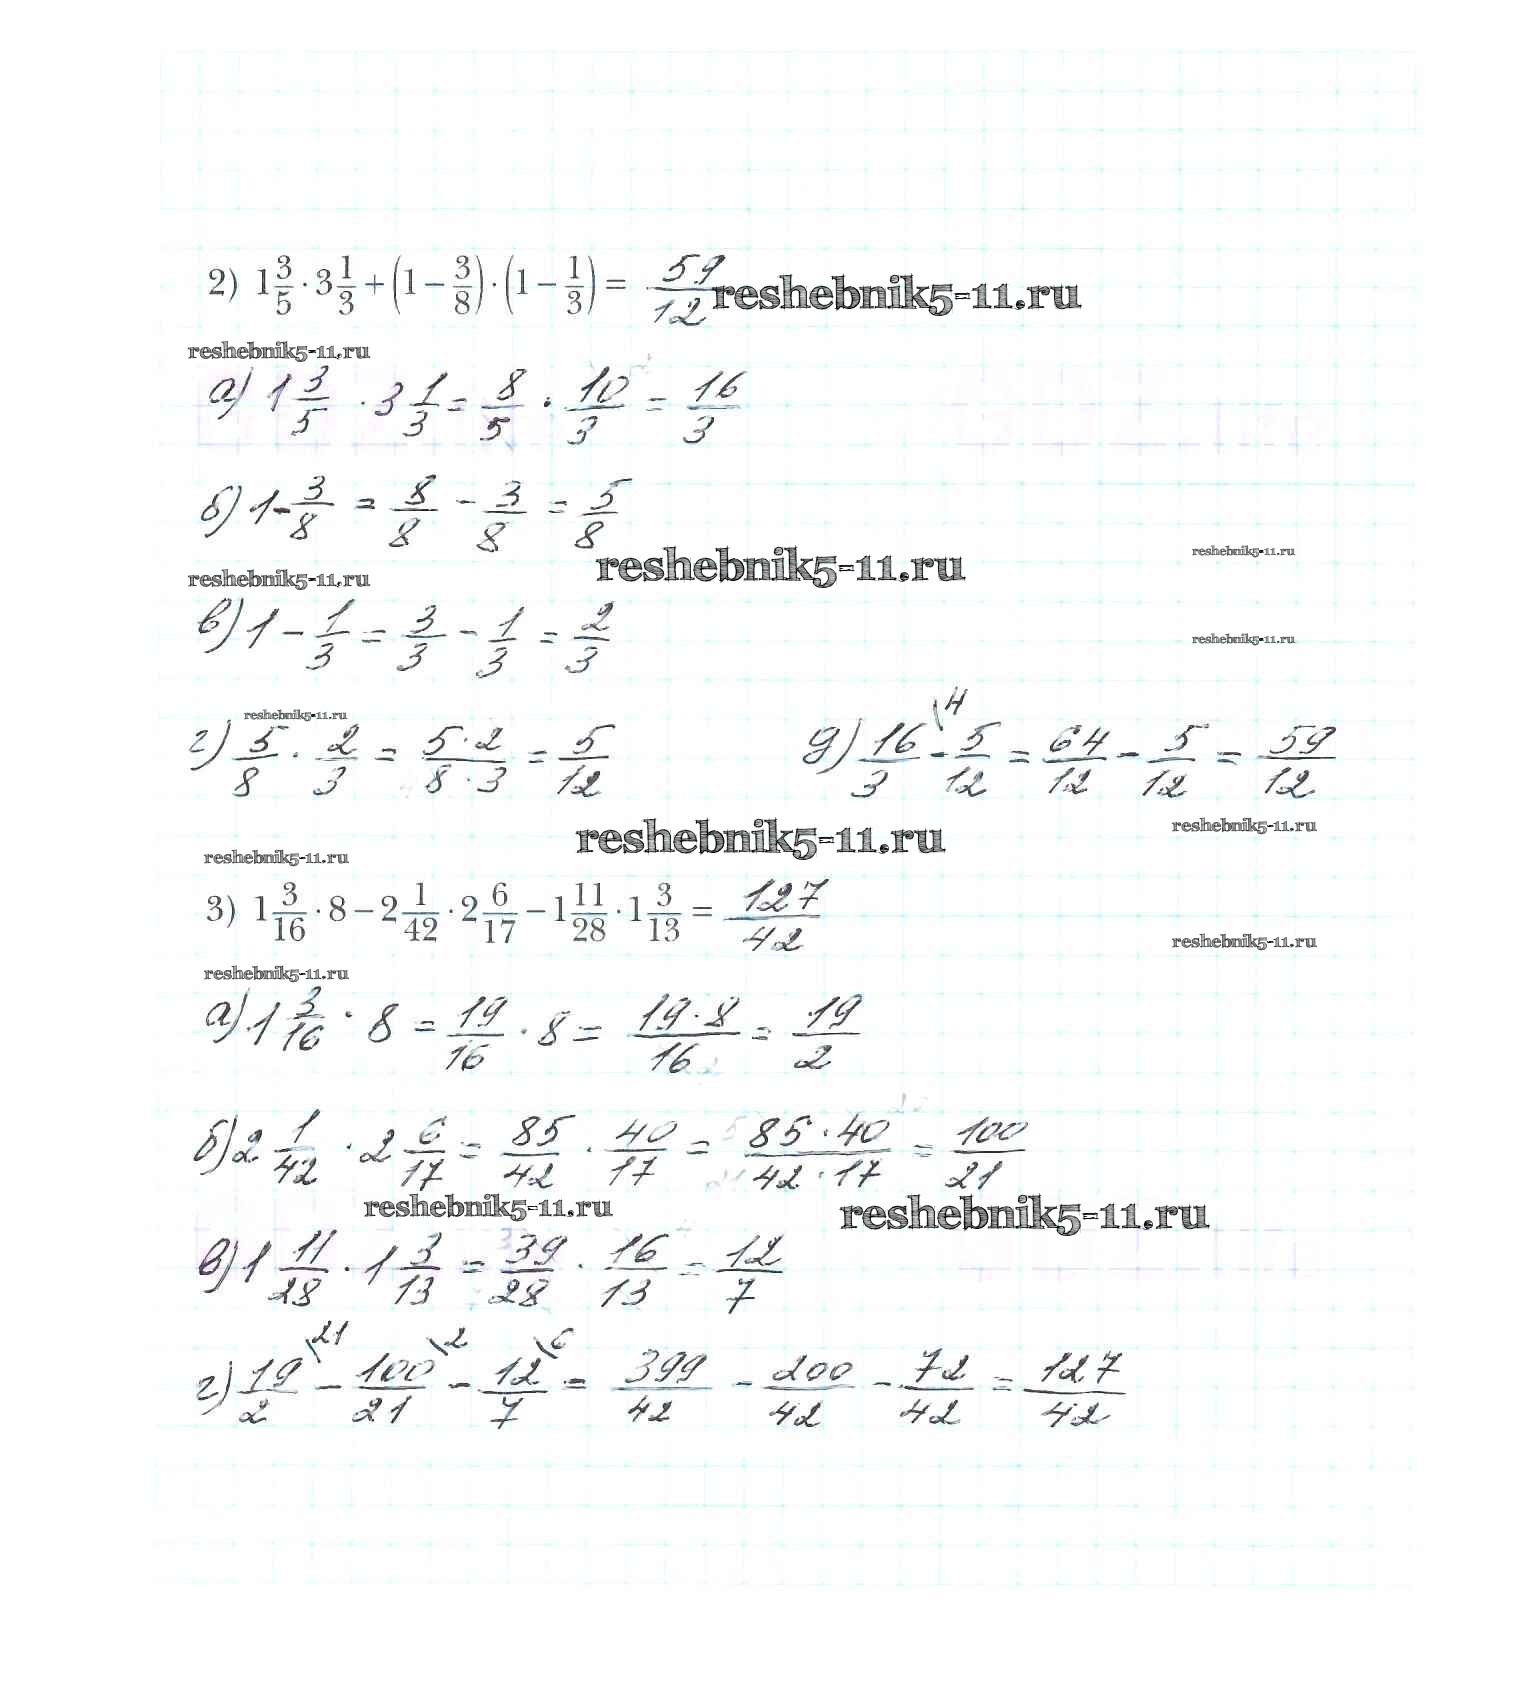 2) 1 3/5 · 3 1/3 + (1 − 3/8) · (1 − 1/3) = 59/12 reshebnik5-11.ru
reshebnik5-11.ru
а) 1 3/5 · 3 1/3 = 8/5 · 10/3 = 16/3
б) 1 - 3/8 = 8/8 - 3/8 = 5/8
reshebnik5-11.ru reshebnik5-11.ru reshebnik5-11.ru
в) 1 - 1/3 = 3/3 - 1/3 = 2/3 reshebnik5-11.ru
reshebnik5-11.ru
г) 5/8 · 2/3 = 5·2/8·3 = 5/12 д) 16/3 \4 - 5/12 = 64/12 - 5/12 = 59/12
reshebnik5-11.ru reshebnik5-11.ru reshebnik5-11.ru
3) 1 3/16 · 8 − 2 1/42 · 2 6/17 − 1 11/28 · 1 3/13 = 127/42 reshebnik5-11.ru
reshebnik5-11.ru
а) 1 3/16 · 8 = 19/16 · 8 = 19·8/16 = 19/2
б) 2 1/42 · 2 6/17 = 85/42 · 40/17 = 85·40/42·17 = 100/21
reshebnik5-11.ru reshebnik5-11.ru
в) 1 11/28 · 1 3/13 = 39/28 · 16/13 = 12/7
г) 19/2 \21 - 100/21 \2 - 12/7 \6 = 399/42 - 200/42 - 72/42 = 127/42